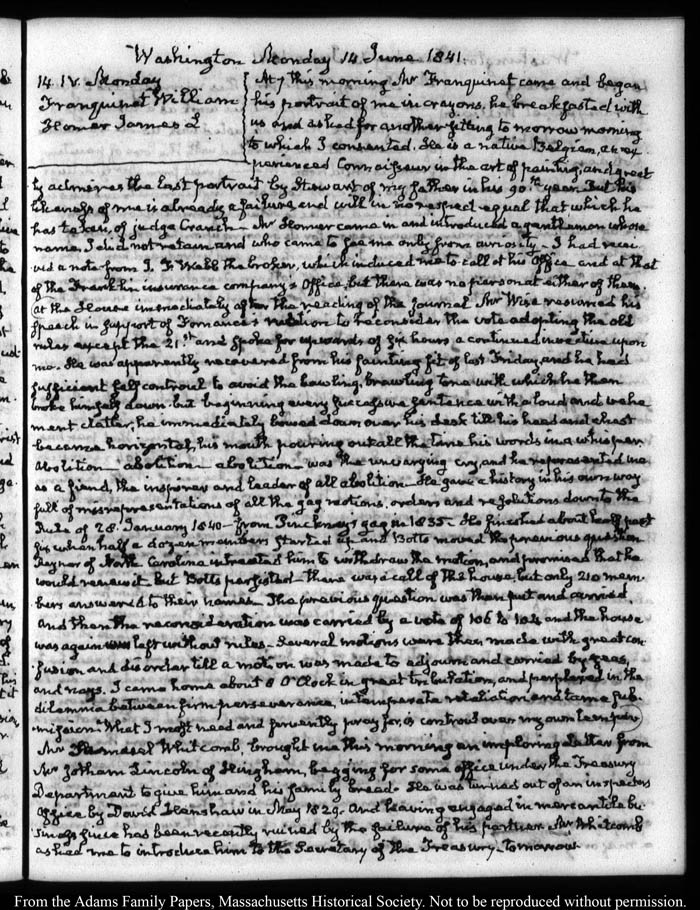 Washington Monday 14 June 1841.
14. IV. Monday
Franquinet William
Homer James L
At 7 this morning Mr Franquinet came and began
his portrait of me in crayons, he breakfasted with
us and asked for another sitting to morrow morning
to which I consented. He is a native Belgian, an ex
perienced Connaisseur in the art of painting, and great
ly admires the last portrait by Stewart of my father in his 90th year. But his
likeness of me is already a failure, and will in no respect equal that which he
has taken, of judge Cranch. Mr Homer came in and introduced a gentleman whose
name I did not retain, and who came to see me only from curiosity. I had recei
ved a note from I. F. Webb the broker, which induced me to call at his Office and at that
of the Franklin insurance company's Office, but there was no person at either of them
at the House immediately after the reading of the journal Mr Wise resumed his
speech in support of Fornance's motion to reconsider the vote adopting the old
rules except the 21st and spoke for upwards of six hours a continued invective upon
me. He was apparently recovered from his fainting fit of last Friday, and he had
sufficient self controul to avoid the howling, brawling tone with which he then
broke himself down. but beginning every successive sentence with a loud and vehe
ment clatter, he immediately bowed down over his desk till his head and chest
became horizontal, his mouth pouring out all the time his words in a whisper.
Abolition abolition abolition was the unvarying cry, and he represented me
as a fiend, the inspirer and leader of all abolition. He gave a history in his own way
full of misrepresentations of all the gag motions, orders and resolutions down to the
Rule of 28. January 1840 from Pinckney's gag in 1835. He finished about half past
six when half a dozen members started up, and Botts moved the previous question
Rayner of North Carolina intreated him to withdraw the motion, and promised that he
would renew it. but Botts persisted there was a call of the house, but only 210 mem
bers answered to their names. The previous question was then put and carried,
and then the reconsideration was carried by a vote of 106 to 104 and the house
was again left without rules. Several motions were then made with great con
fusion and disorder till a motion was made to adjourn and carried by yeas,
and nays. I came home about 8 O'Clock in great tribulation, and perplexed in the
dilemma between firm perseverance, intemperate retaliation and tame sub
mission. What I most need and fervently pray for, is controul over my own temper
Mr Whitcomb, brought me this morning an imploring Letter from
Mr Jotham Lincoln of Hingham, begging for some office under the Treasury
Department to give him and his family bread. He was turned out of an inspectors
Office by David Henshaw in May 1829. And having engaged in mercantile bu
siness since has been recently ruined by the failure of his partner. Mr Whitcomb
asked me to introduce him to the Secretary of the Treasury tomorrow
From the Adams Family Papers, Massachusetts Historical Society. Not to be reproduced without permission.